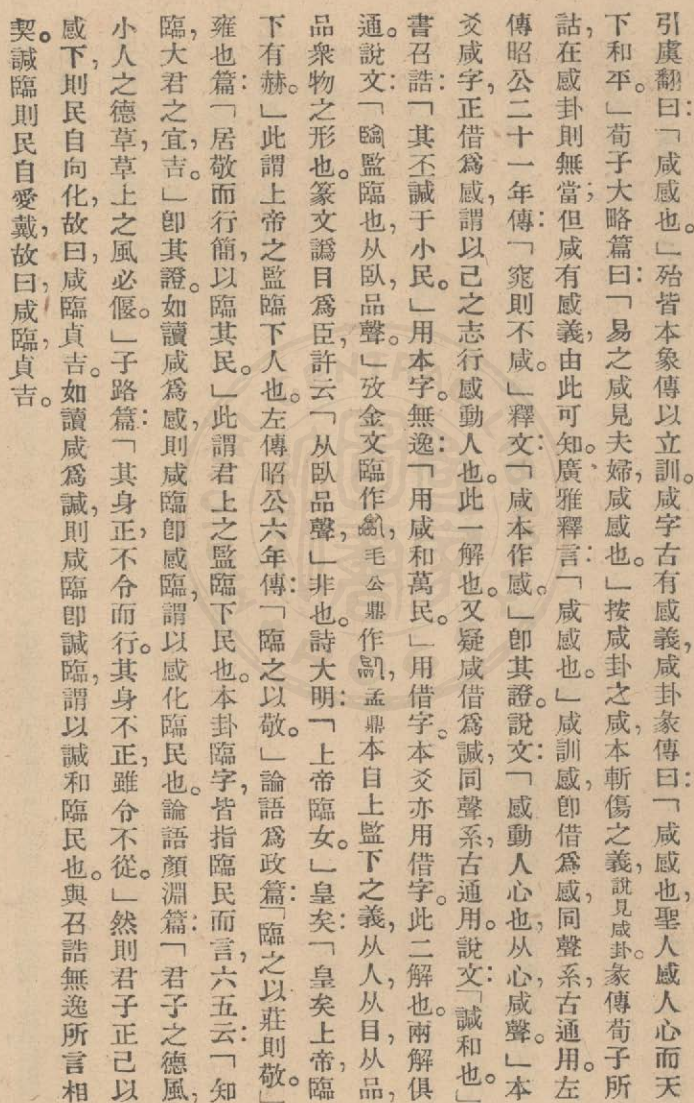 引虞翻曰:「咸感也。」殆皆本象傳以立訓。咸字古有感義,咸卦彖傳曰:「咸感也,聖人感人心而天
下和平。」荀子大略篇曰:「易之咸見夫婦,咸感也。」按咸卦之咸,本斬傷之義,說見咸卦。彖傳荀子所
詁在感卦則無當;但咸有感義,由此可知。廣雅釋言:「咸感也。」咸訓感,卽借爲感,同聲系,古通用。左
傳昭公二十一年傳:「窕則不咸。」釋文:「咸本作感。」卽其證。說文:「感動人心也,从心,咸聲。」本
爻咸字,正借爲感,謂以己之志行感動人也。此一解也。又疑咸借爲諴,同聲系,古通用。說文:「諴和也。」
書召誥:「其丕諴于小民。」用本字。無逸:「用咸和萬民。」用借字。本爻亦用借字。此二解也。兩解俱
通。說文:「臨監臨也,从臥,品聲。」攷金文臨作,毛公鼎作,盂鼎本自上監下之義,从人,从目,从品,
品衆物之形也。篆文譌目爲臣,許云「从臥品聲,」非也。詩大明:「上帝臨女。」皇矣:「皇矣上帝,臨
下有赫。」此謂上帝之監臨下人也。左傳昭公六年傳:「臨之以敬。」論語爲政篇:「臨之以莊則敬。」
雍也篇:「居敬而行簡,以臨其民。」此謂君上之監臨下民也。本卦臨字,皆指臨民而言,六五云:「知
臨,大君之宜,吉。」卽其證。如讀咸爲感,則咸臨卽感臨,謂以感化臨民也。論語顏淵篇:「君子之德風,
小人之德草,草上之風必偃。」子路篇:「其身正,不令而行。其身不正,雖令不從。」然則君子正己以
感下,則民自向化,故曰,咸臨貞吉。如讀咸爲諴,則咸臨卽諴臨,謂以諴和臨民也。與召誥無逸所言相
契。諴臨則民自愛戴,故曰,咸臨,貞吉。